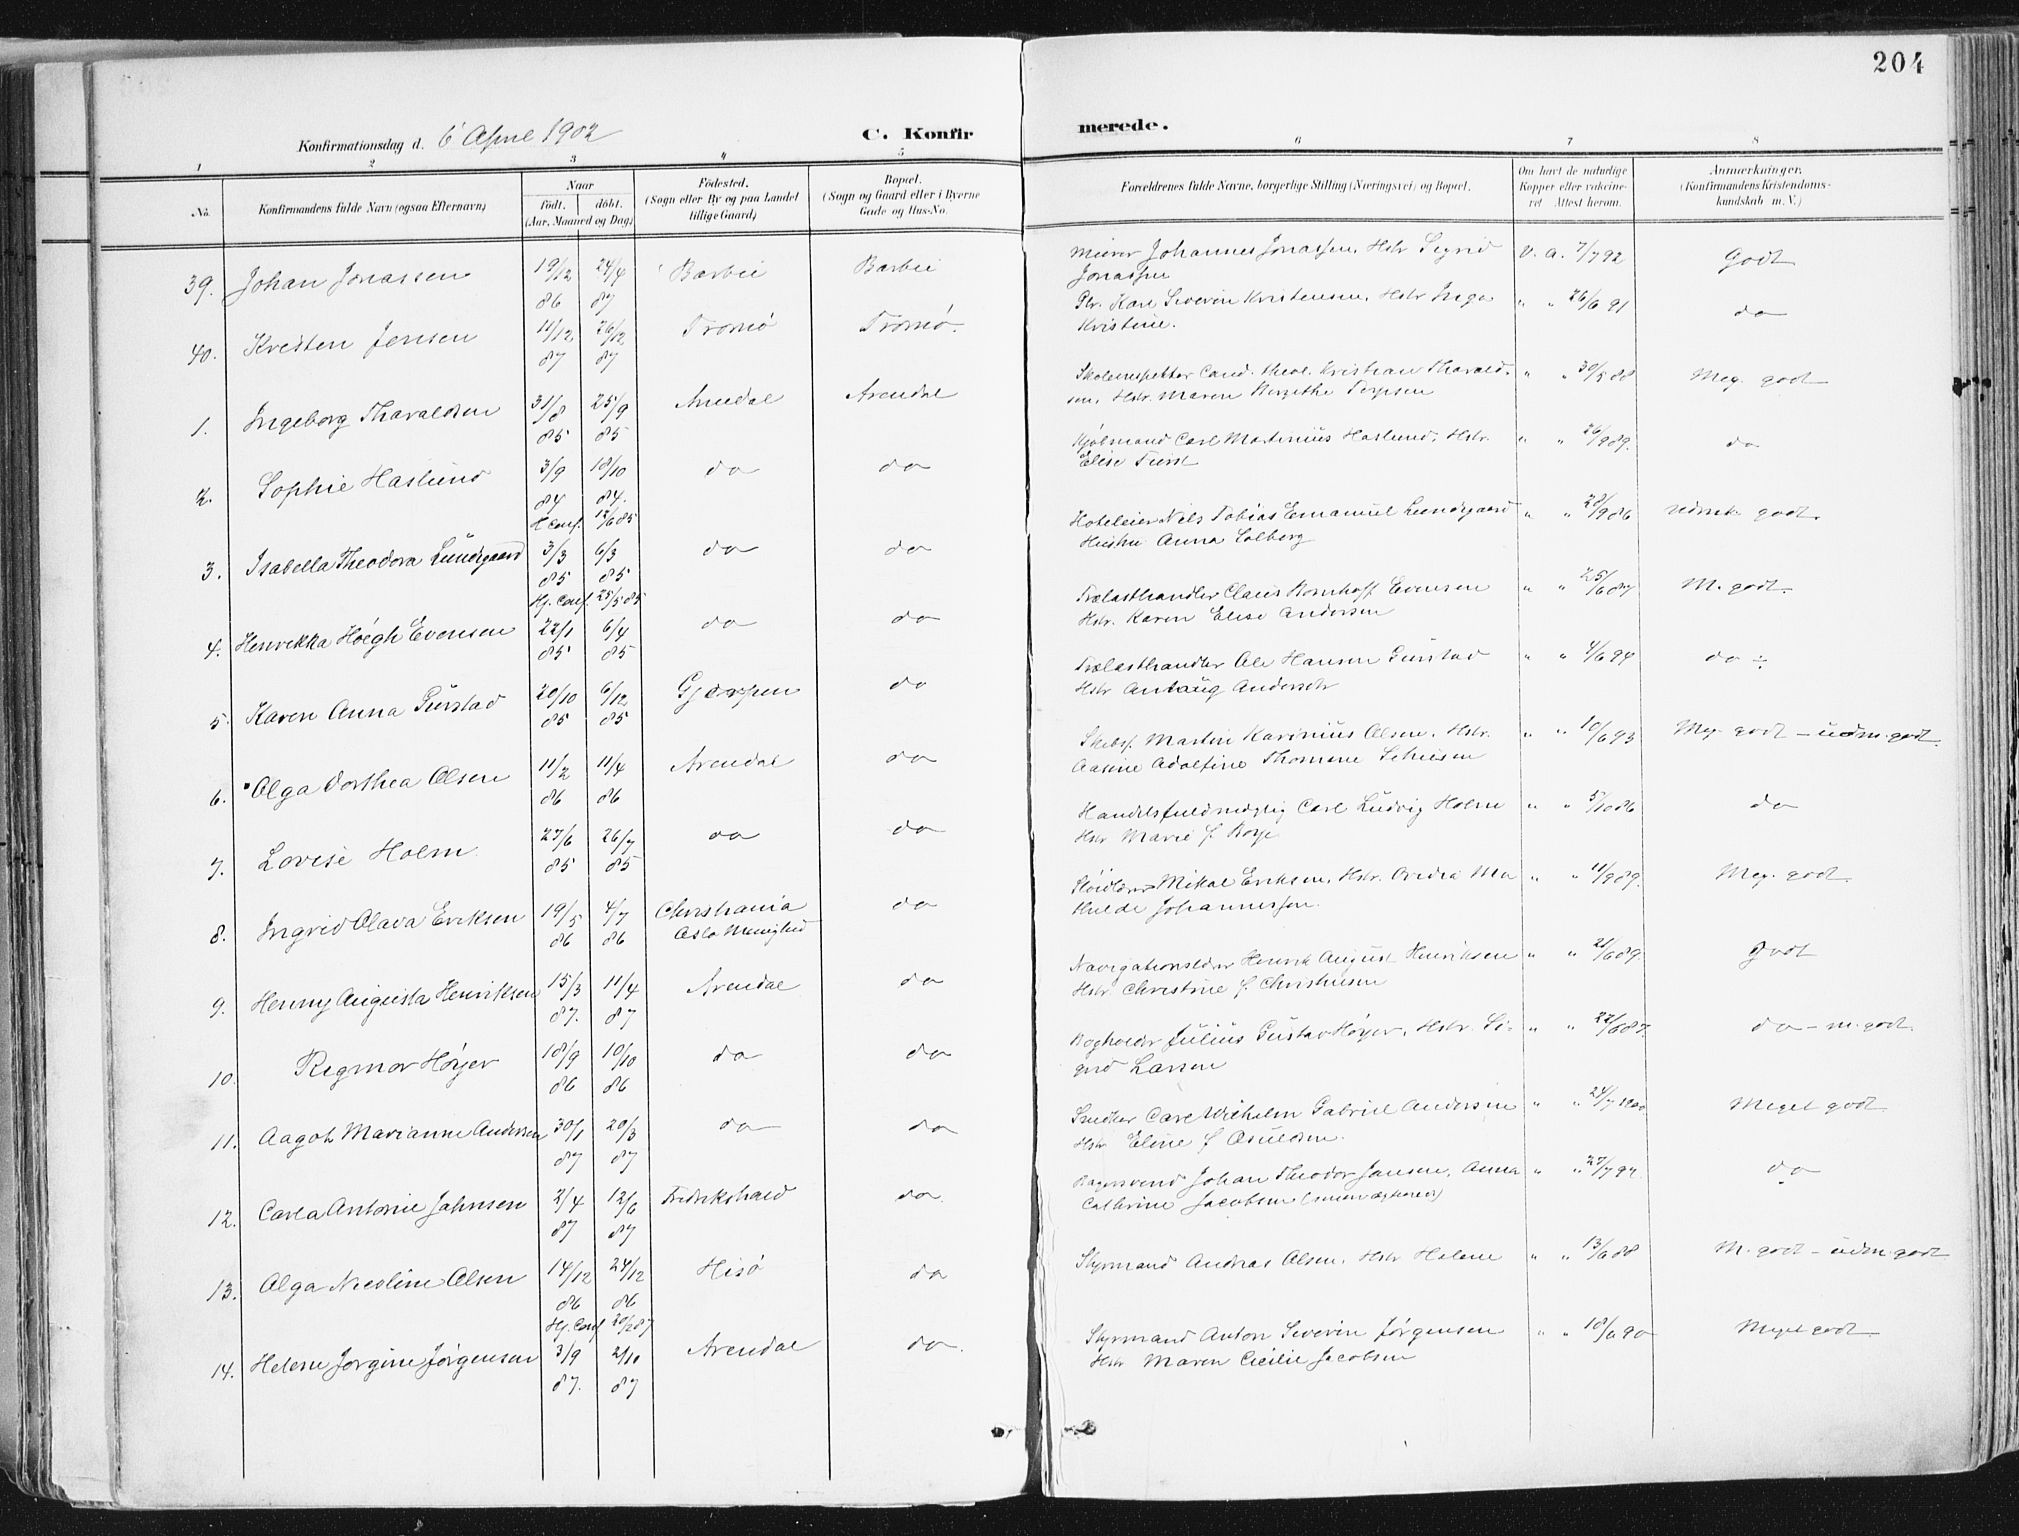 204
Konfirmationsdag d. 6 April 1902
C. Konfirmerede.
1 2 3 4 5 6 7 8
No. Konfirmandens fulde Navn (ogsaa Efternavn) Naar födt. döbt. (Aar, Maaned og Dag) Födested. (Sogn eller By og paa Landet tillige Gaard) Bopæl. (Sogn og Gaard eller i Byerne Gade og Hus-No. Forældrenes fulde Navne, borgerlige Stilling (Næringsvei) og Bopæl. Om havt de naturlige Kopper eller vakcineret Attest herom. Anmærkninger. (Konfirmandens Kristendomskundskab m. V.)
39. Johan Jonassen 19/12 86 24/4 87 Barbu Barbu Johannes Jonassen, Hstr Sigrid Jonassen v. a. 7/7 92 Godt
40. Kristen Jensen 11/12 87 26/12 87 Tromö Tromö. Karl Severin Kristensen, Hstr Inga Kristine. " " 26/6 91 do
1. Ingeborg Tharaldsen 31/8 85 25/9 85 Arendal Arendal Skoleinspektör Cand. theol. Kristian Tharaldsen, Hstr. Maren Bergithe Terpsen " " 30/5 88 Meg. godt
2. Sophie Haslund 3/9 84 18/10 84. do do Carl Martinius Haslund, Hstr. Elise Furst " " 26/9 89. do
H conf. 12/6 85
3. Isabella Theodora Lundegaard 3/3 85 6/3 85 do do Hoteleier Nils Tobias Emanuel Lundegaard Hustru Anna Solberg " " 28/9 86 udmk. godt.
Hj. conf. 25/5 85
4. Henrikka Höegh Evensen 22/1 85 6/4 85 do do Trælasthandler Claus Evensen Hstr. Karen Elise Andersen " " 25/6 87 M. godt.
5. Karen Anna Gurstad 20/10 85 6/12 85 Gjerpen do Trælasthandler Ole Hansen Gurstad Hstr Antaug Andersdtr " " 4/6 94 do ÷
6. Olga Dorthea Olsen 11/2 86 11/4 86 Arendal do Skibsf. Martin Karinius Olsen. Hstr. Aasine Adolfine Thomine " " 10/6 93 Meg. godt – udm. godt.
7. Lovise Holm 27/6 85 26/7 85 do do Handelsfuldmægtig Carl Ludvig Holm Hstr Marie f. " " 5/10 86 do
8. Ingrid Olava Eriksen 19/5 86 4/7 86 Christiania Oslo Menighed do Mikal Eriksen, Hstr. Ovidia Mathilde Johannessen. " " 11/9 89. Meg. godt.
9. Henny Augusta Henriksen 15/3 87. 11/4 87 Arendal do Navigationslærer Henrik August Henriksen Hstr. Christine f. Christensen " " 21/6 89. Godt
10. Ragmor Höyer 18/9 86 10/10 86 do do Bogholder Julius Gustav Höyer, Hstr. Sigrid Larsen " " 22/6 87. do – m. godt.
11. Aagot Marianne Andersen 30/1 87 20/3 87 do do Snedker Carl Wilhelm Gabriel Andersen Hstr Eline f. Osuldsen. " " 24/7 1900 Meget godt
12. Carla Antonie Jahnsen 2/4 87 12/6 87 Fredrikshald do. Bagersvend Johan Theodor Jansen, Anna Cathrine Jacobsen " " 27/7 92 do
13. Olga Nicoline Olsen 14/12 86 24/12 86 Hisö do Styrmand Andreas Olsen, Hstr Helene " " 13/6 88 M. godt – udm. godt
Hj. Conf. 20/2 87
14. Helene Jörgine Jörgensen 3/9 87. 2/10 87 Arendal do. Styrmand Anton Severin Jörgensen Hstr Maren Cicilie Jacobsen " " 18/6 90 Meget godt